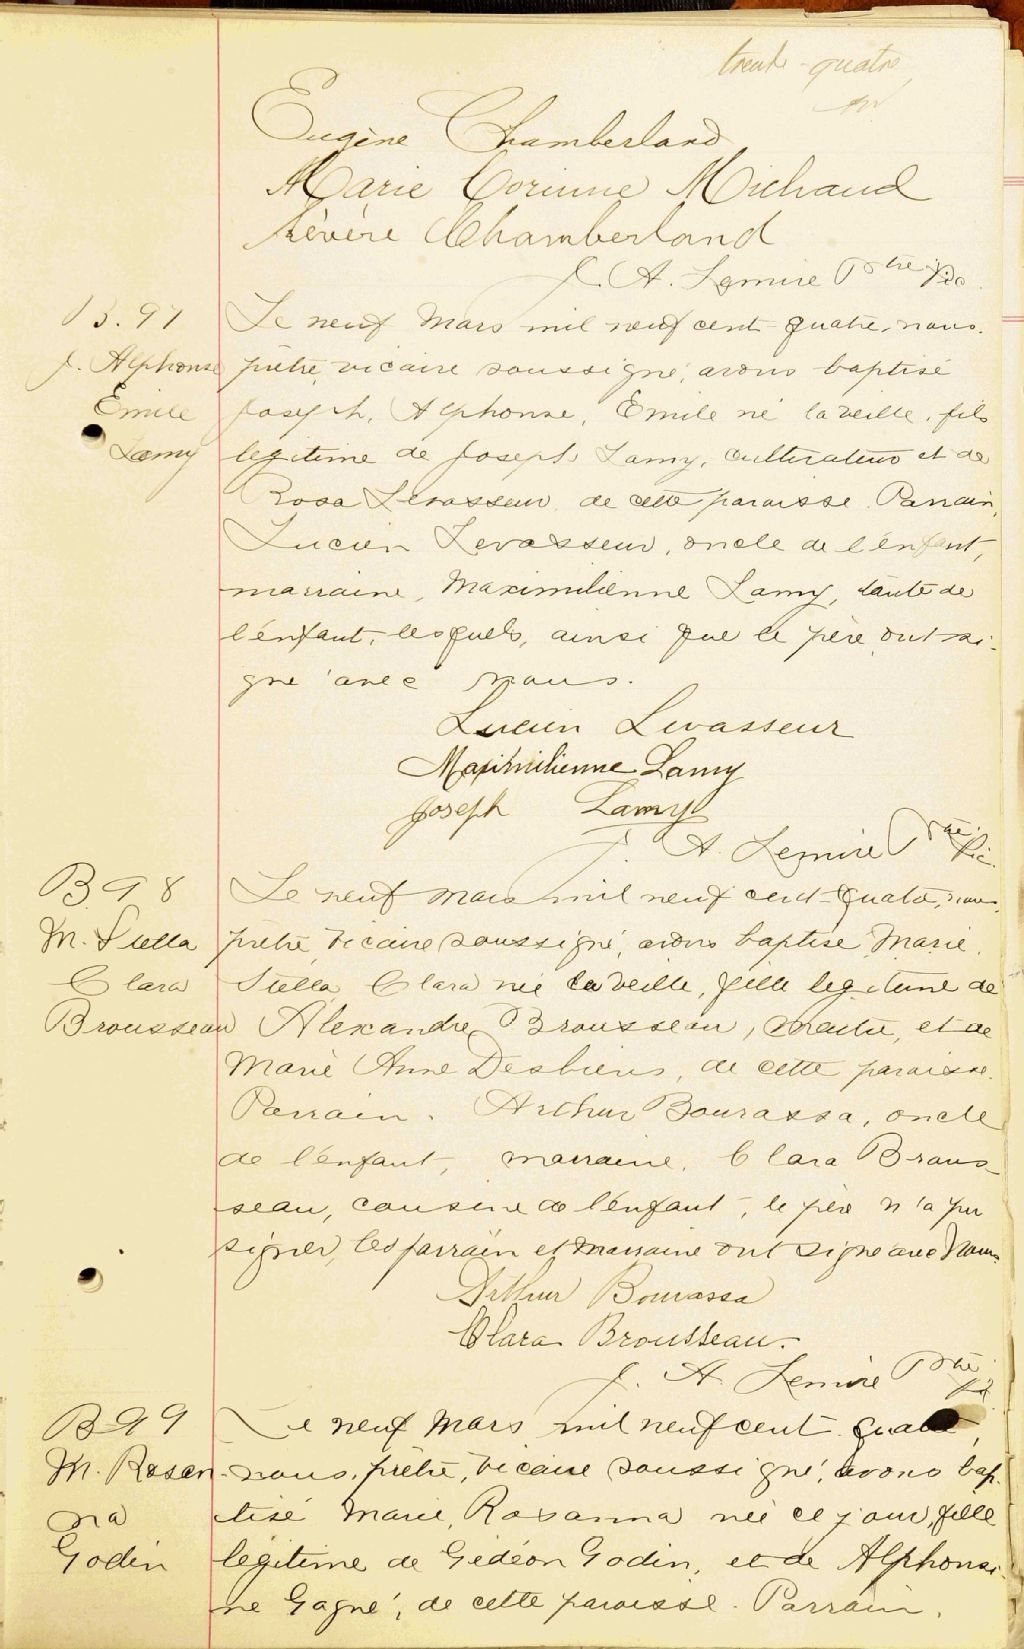 trente-quatre
Eugène Chamberland
Marie Corinne Michaud
Sévère Chamberland
J. A. Lemire Ptre Vic.
B. 97
J. Alphonse
Émile
Lamy
Le neuf Mars mil neuf cent quatre, nous
prêtre, vicaire soussigné, avons baptisé
Joseph, Alphonse, Émile né la veille, fils
légitime de Joseph Lamy, cultivateur et de
Rosa Levasseur de cette paroisse. Parrain,
Lucien Levasseur, oncle de l'enfant,
marraine, Maximilienne Lamy, tante de
l'enfant, lesquels, ainsi que le père ont si-
gné avec nous.
Lucien Levasseur
Maximilienne Lamy
Joseph Lamy
J. A. Lemire Ptre. Vic.
B 98
M. Stella
Clara
Brousseau
Le neuf mars mil neuf cent quatre, nous
prêtre, vicaire soussigné, avons baptisé Marie,
Stella, Clara née la veille, fille légitime de
Alexandre Brousseau, et de
Marie Anne Desbiens, de cette paroisse.
Parrain. Arthur Bourassa, oncle
de l'enfant, marraine, Clara Brous-
seau, cousine de l'enfant, le père n'a pu
signer, les parrain et marraine ont signé avec Nous.
Arthur Bourassa
Clara Brousseau.
J. A. Lemire Ptre. Vic.
B 99
M. Rosan-
na
Godin
Le neuf Mars mil neuf cent quatre,
nous, prêtre, vicaire soussigné, avons bap-
tisé Marie, Rosanna née ce jour, fille
légitime de Gédéon Godin, et de Alphonsi-
ne Gagné, de cette paroisse. Parrain,